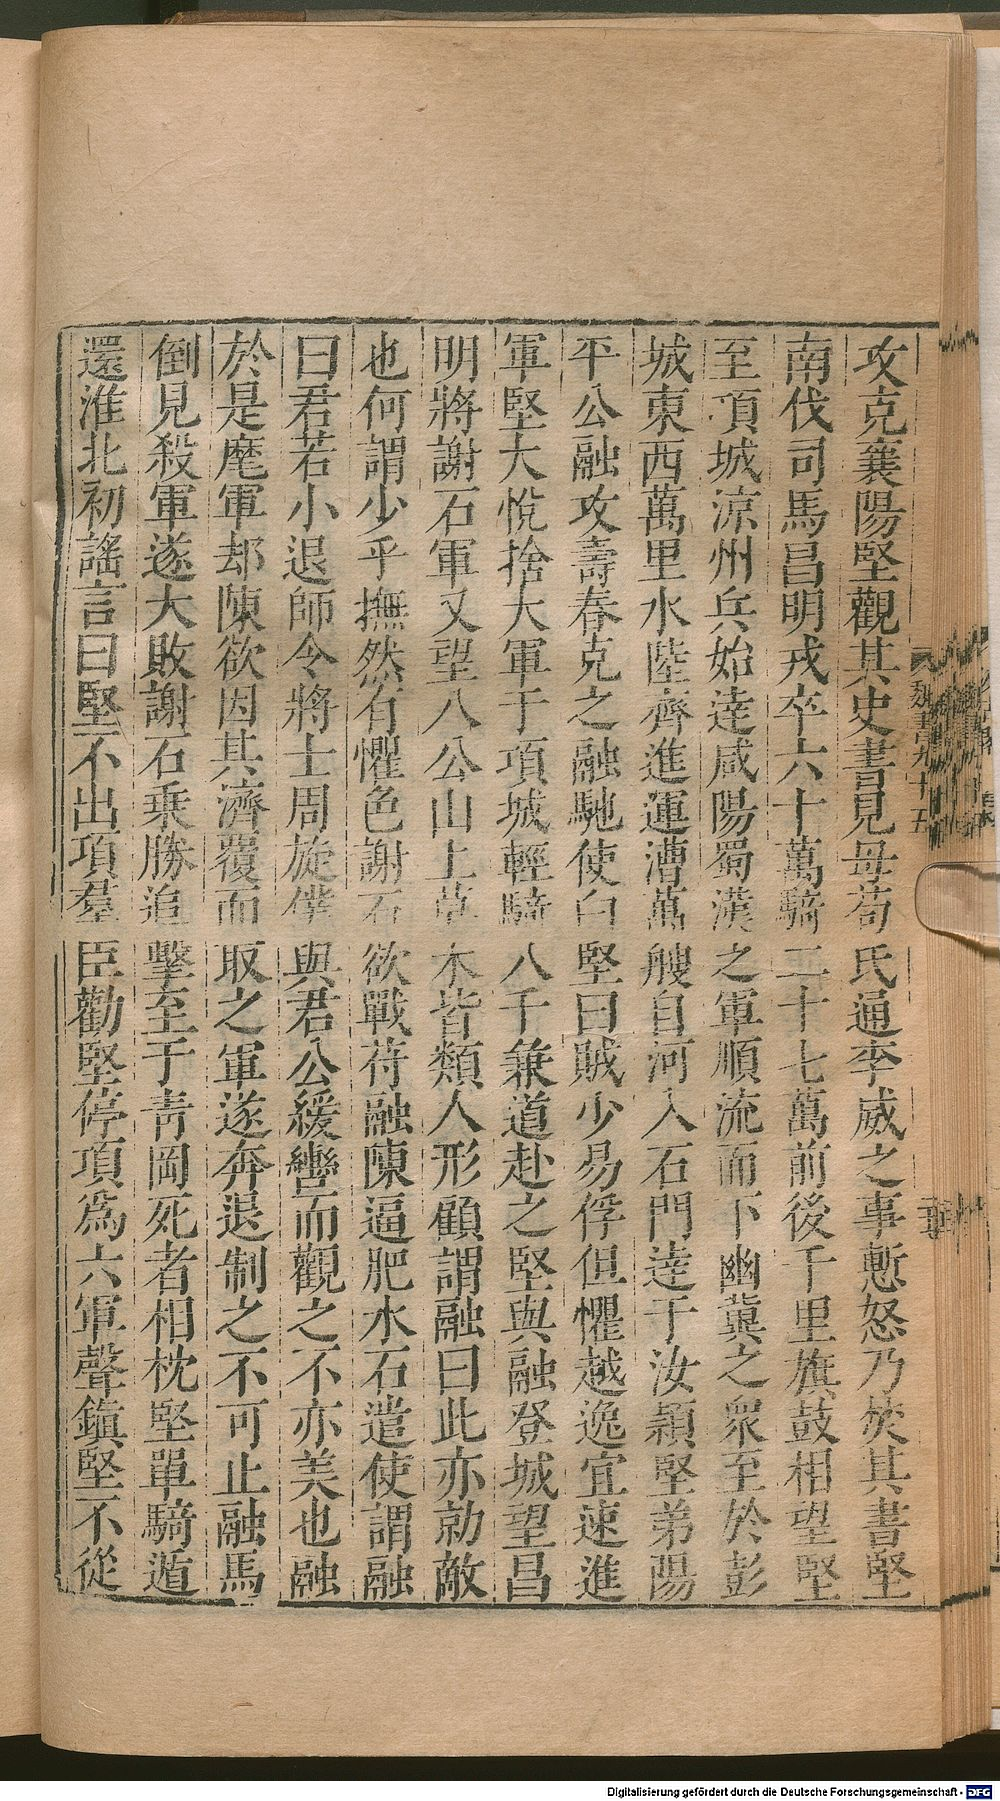 攻克襄陽堅觀其史書見母苟氏通李威之事慙怒乃焚其書堅
南伐司馬昌明戎卒六十萬騎二十七萬前後千里旗鼓相望堅
至項城涼州兵始達咸陽蜀漢之軍順流而下幽冀之眾至於彭
城東西萬里水陸齊進運漕萬艘自河入石門達于汝潁堅弟陽
平公融攻壽春克之融馳使白堅曰賊少易俘但懼越逸宜速進
軍堅大悅捨大軍于項城輕騎八千兼道赴之堅與融登城望昌
明將謝石軍又望八公山上草木皆類人形顧謂融曰此亦勍敵
也何謂少乎撫然有懼色謝石欲戰苻融陳逼肥水石遣使謂融
曰君若小退師令將士周旋僕與君公緩轡而觀之不亦美也融
於是麾軍却陳欲因其濟覆而取之軍遂奔退制之不可止融馬
倒見殺軍遂大敗謝石乗勝追擊至于青岡死者相枕堅單騎遁
還淮北初謠言曰堅不出項羣臣勸堅停項爲六軍聲鎭堅不從
魏書九十五
Digitalisierung gefördert durch die Deutsche Forschungsgemeinschaft - DFG